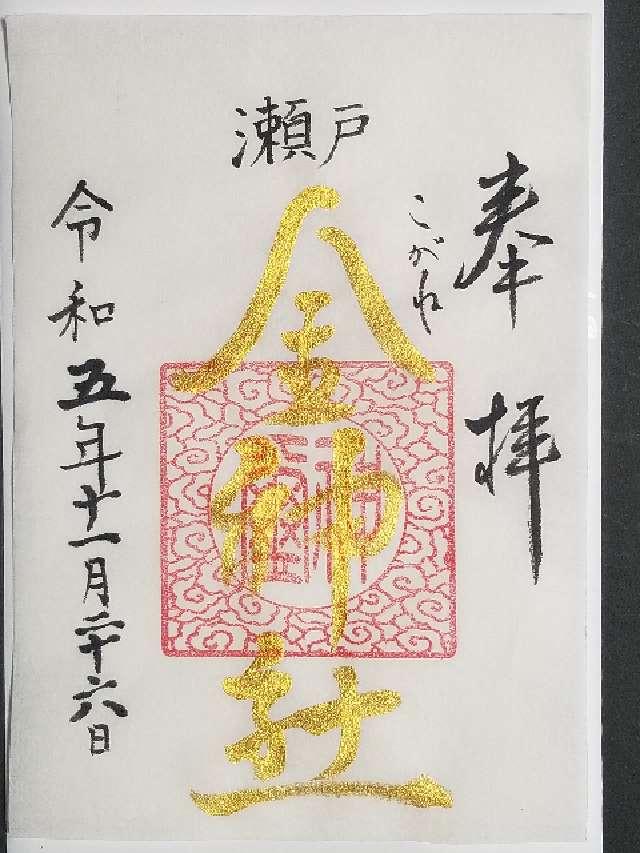 奉拝
こがね
瀬戸
金神社
令和五年十一月二十六日